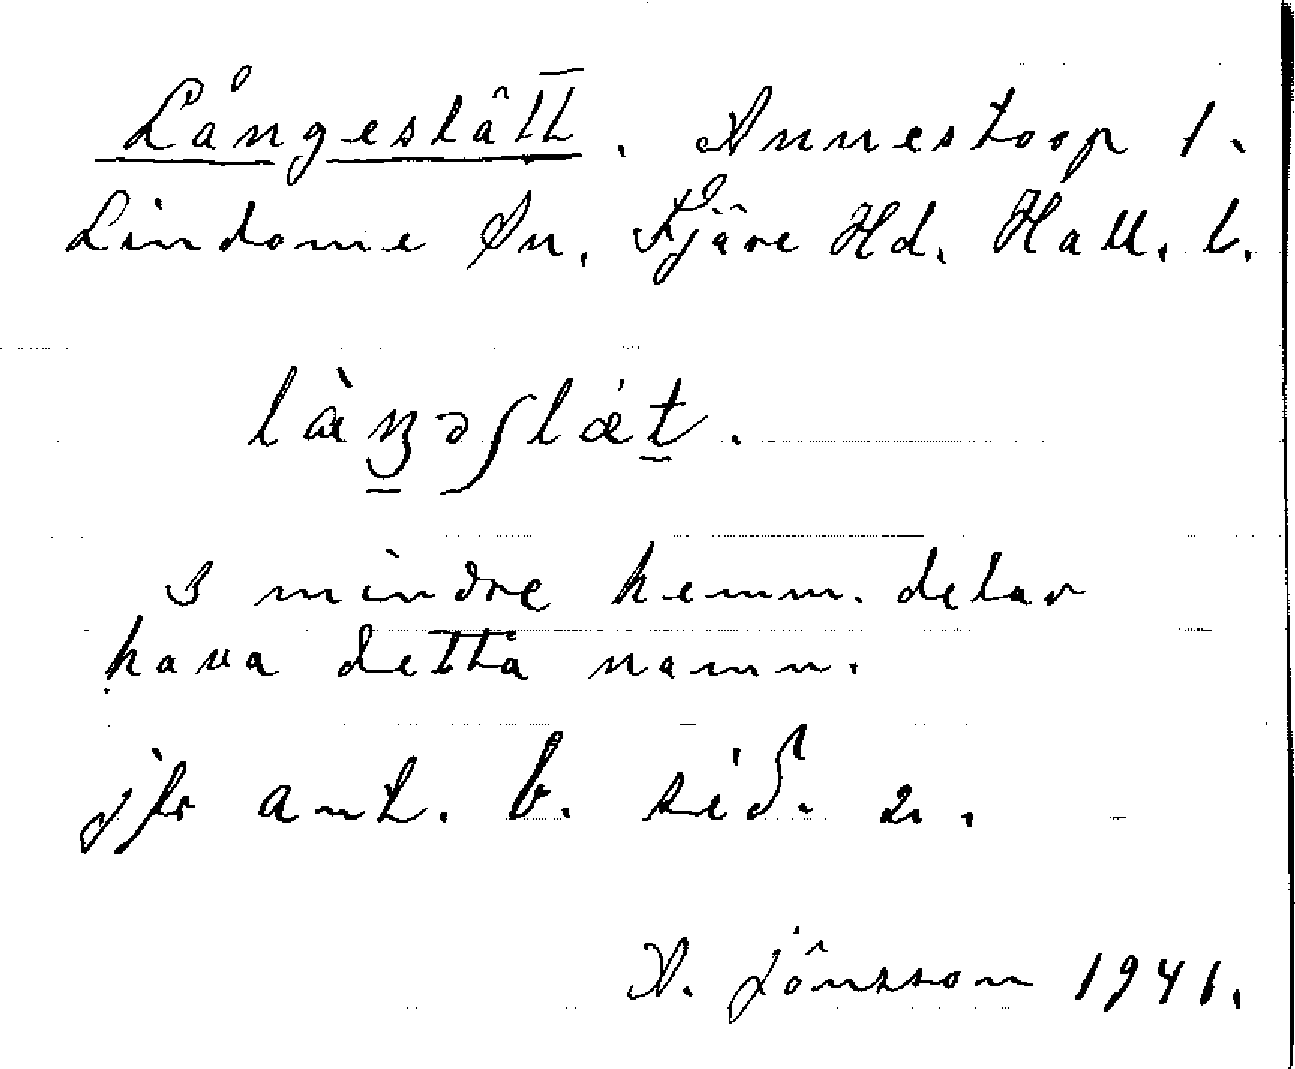 Långeslätt. Annestorp 1.
Lindome Sn. Fjäre Hd. Hall. l.
làŋəslǽt.
3 mindre hemm. delar
hava detta namn.
jfr ant. b. sid. 2.
A. Jönsson 1941.